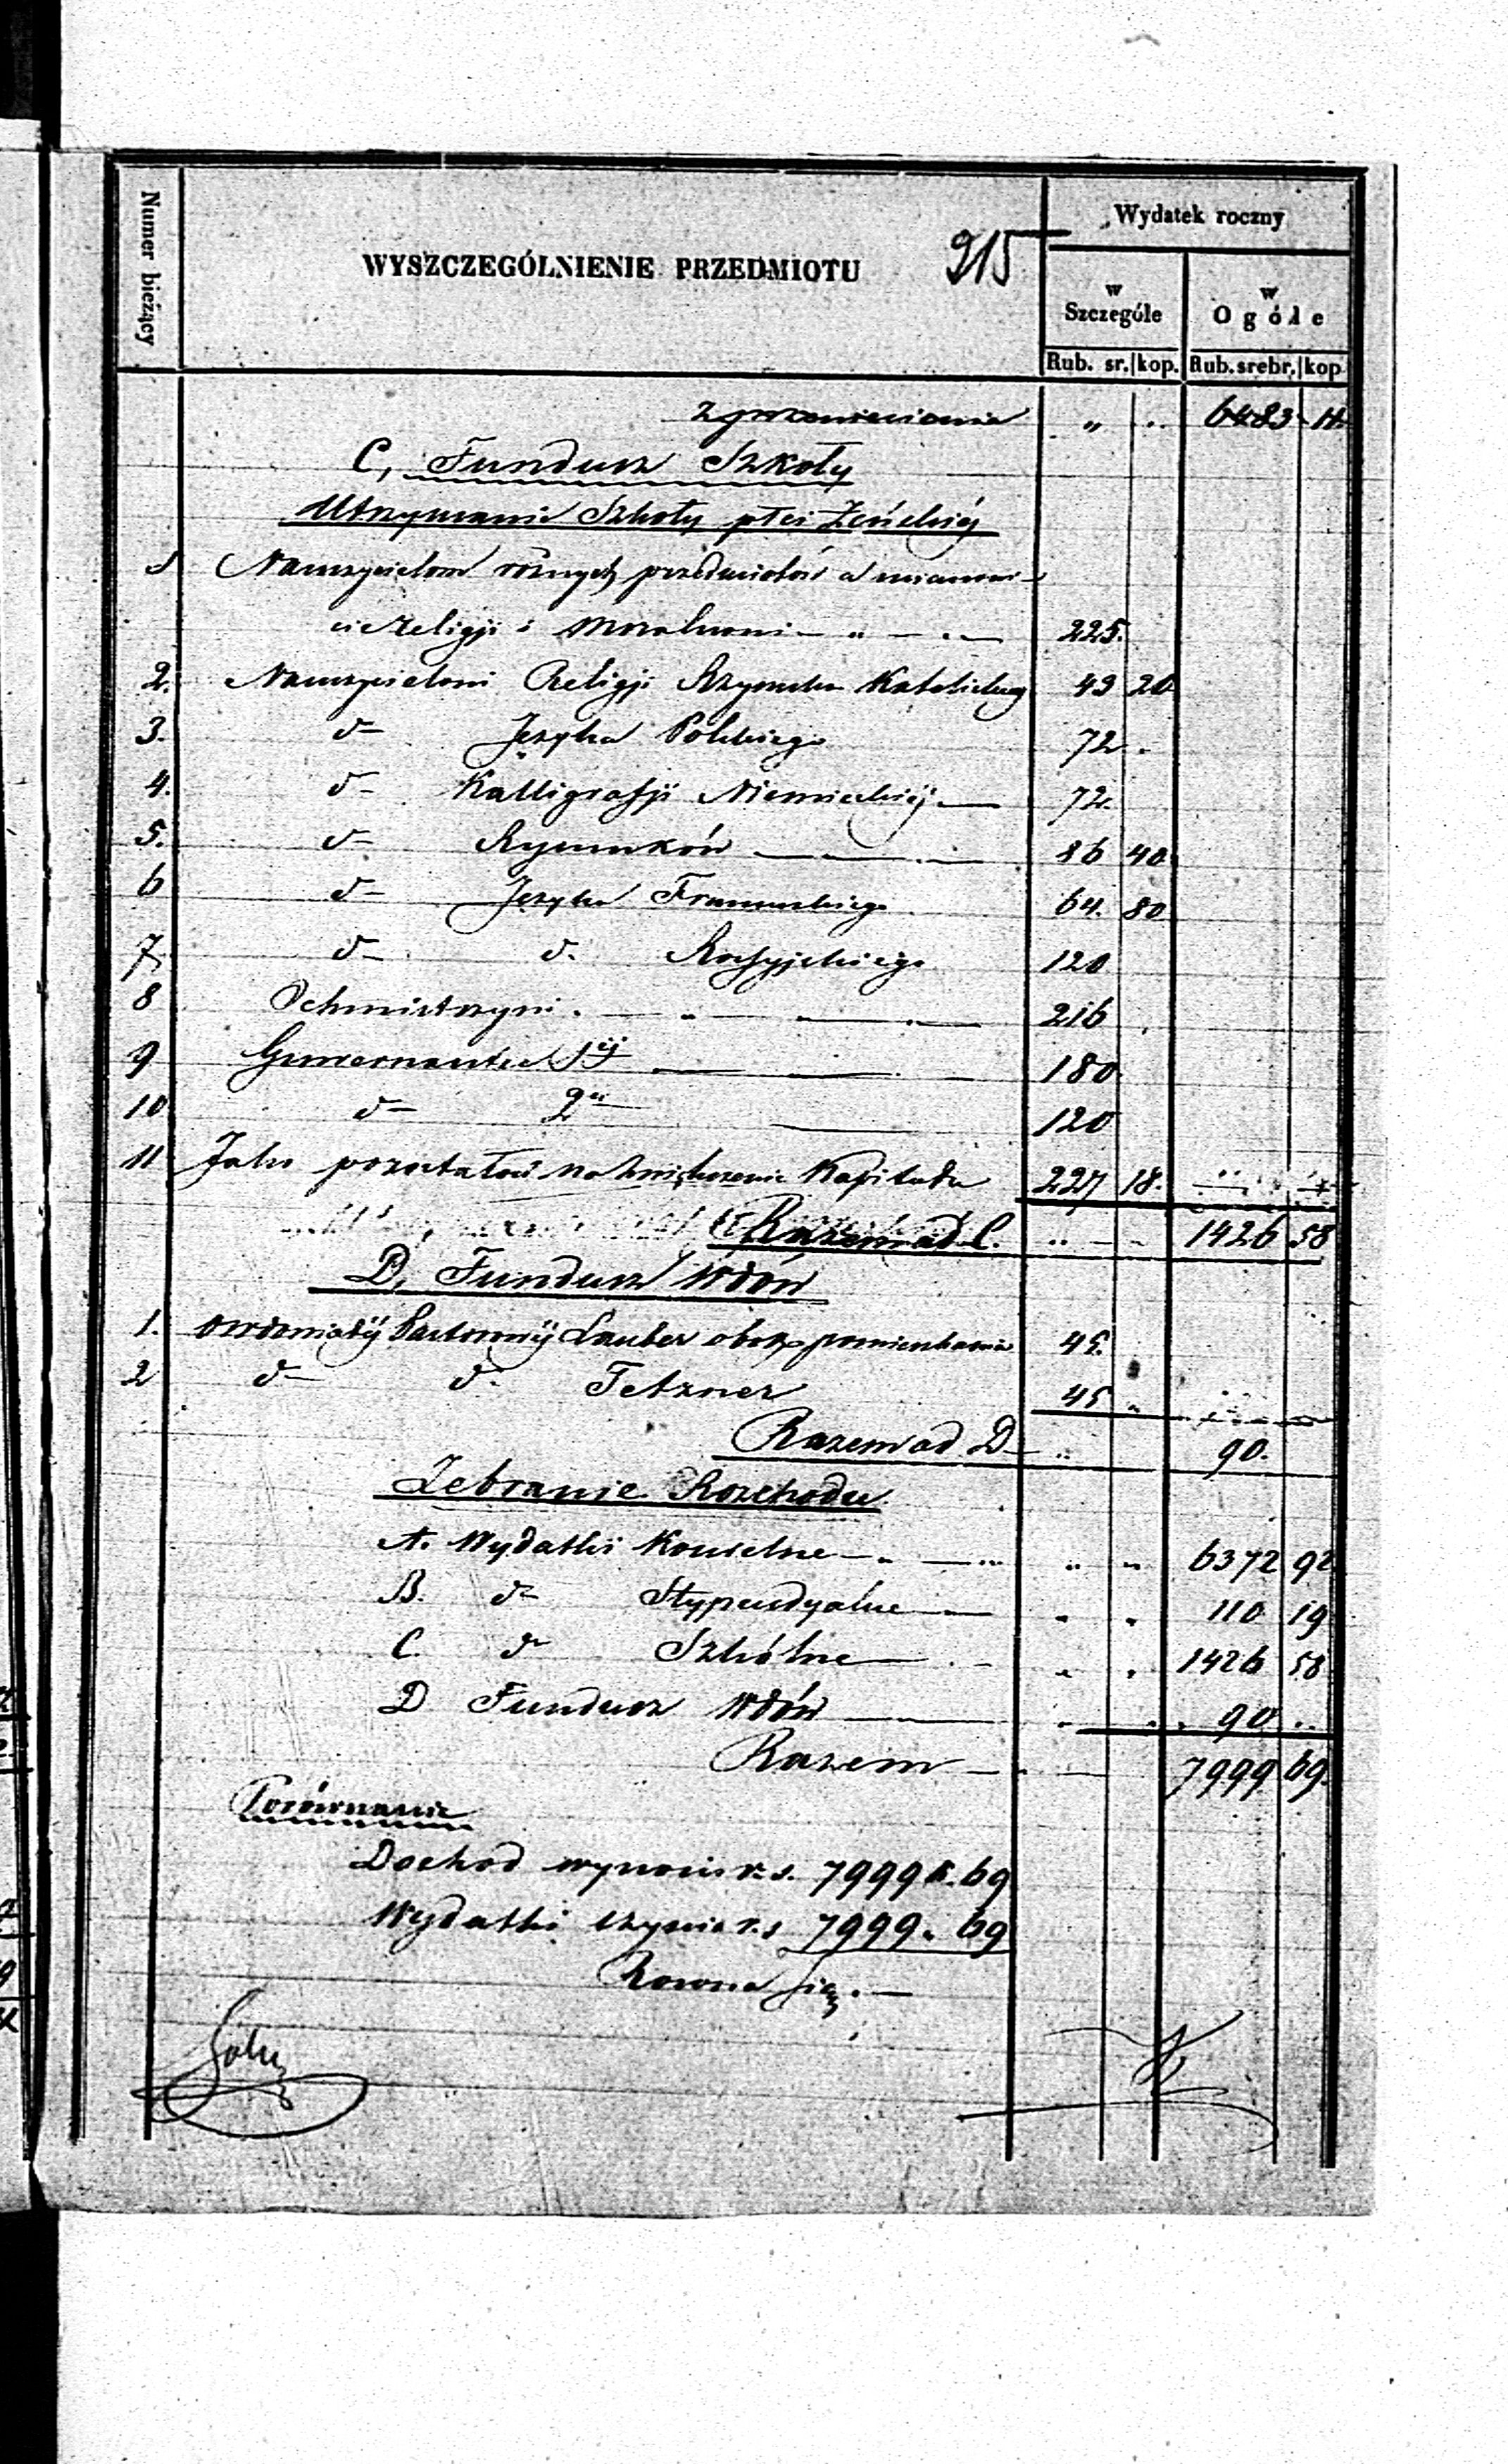 Numer bieżący
WYSZCZEGÓLNIENIE PRZEDMIOTU
215
Wydatek roczny
w Szczególe
w Ogóle
Rub. sr. kop. Rub. srebr. kop
z przeniesienia " .. 6483 11
C, Fundusz Szkoły
Utrzymanie Szkoły płci Żeńskiéj
1 Nauczycielom różnych przedmiotów a mianowi-
cie Religji i Moralności 225.
2. Nauczycielowi Religji Rzymsko Katolickiej 43 20
3. d- Języka Polskiego 72
4. d- Kalligrafji Niemieckiéj 72.
5. d- Rysunków 86 40
6 d- Języka Francuzkiego 64. 80
7. d- d. Rossyjskiego 120
8 Ochmistrzyni 216
9 Guwernantce 1éj 180
10 d- 2éj 120
11 Jako pozostałość na zwiększenie Kapitału 227 18.
Razem ad C. 1426 58
D, Fundusz Wdów
1. owdowiałéj Pastorowéj Lauber obok pomieszkania 45.
2 d- d- Tetzner 45
Razem ad D 90.
Zebranie Rozchodu
A. Wydatki Kościelne 6372 92
B. d- Stypendyalne 110 19
C. d- Szkólne 1426 58
D Fundusz Wdów 90
Razem 7999 69.
Porównanie
Dochod wynosi r.s. 7999 k. 69
Wydatki czynią r.s 7999. 69
Rowna się.